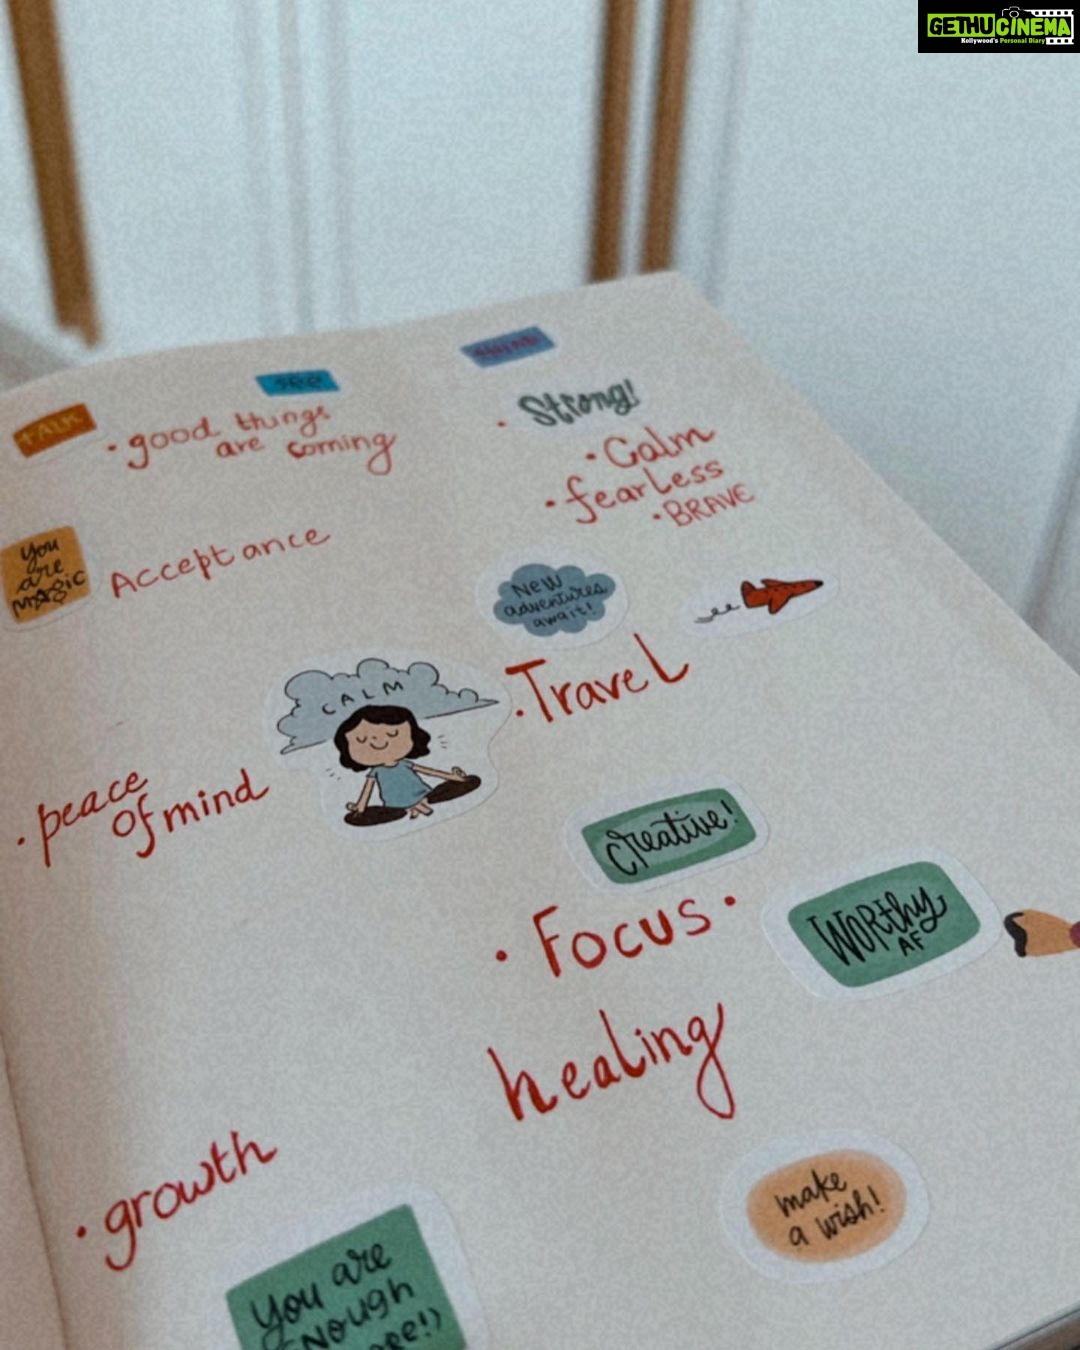 GETHUCINEMA
Kollywood's Personal Diary
TALK
see
• good things
are coming
• Strong!
• Calm
• fearless
• BRAVE
You
are
MAGIC
Acceptance
NEW
adventures
await!
• Travel
CALM
• peace
of mind
creative!
• Focus •
WORthy
AF
healing
• growth
make
a wish!
You are
ENough